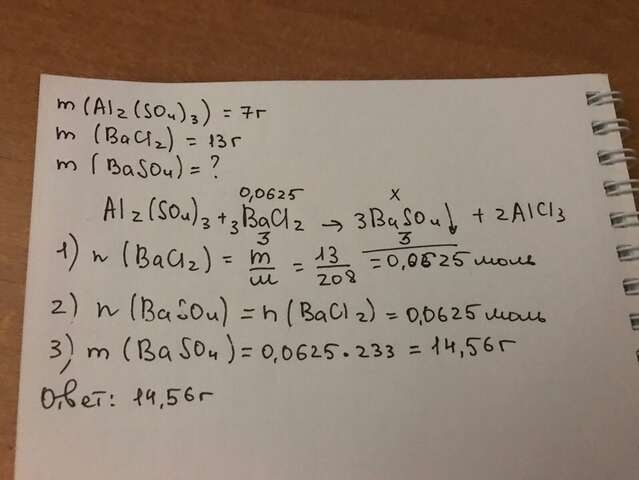 m (Al₂(SO₄)₃) = 7г
m (BaCl₂) = 13г
m (BaSO₄) = ?
0,0625 x
Al₂(SO₄)₃ + 3BaCl₂ → 3BaSO₄↓ + 2AlCl₃
3 3
1) n (BaCl₂) = m/M = 13/208 = 0,0625 моль
2) n (BaSO₄) = n (BaCl₂) = 0,0625 моль
3) m (BaSO₄) = 0,0625 · 233 = 14,56г
Ответ: 14,56г